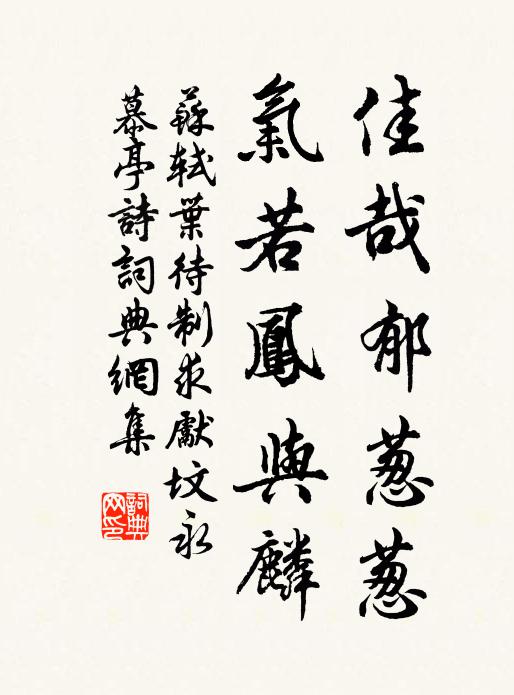 佳哉郁葱葱
氣若鳳與麟
蘇軾葉待制求獻墳永
慕亭詩詞典網集
詞典網印